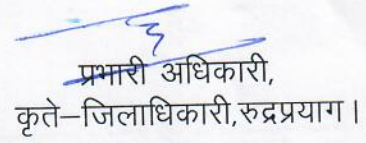 प्रभारी अधिकारी,
कृते–जिलाधिकारी,रुद्रप्रयाग।